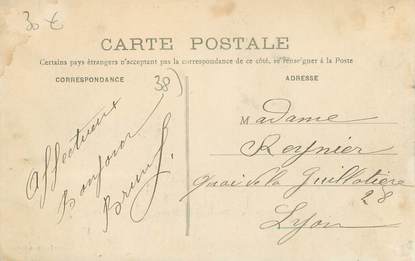 30 €
CARTE POSTALE
Certains pays étrangers n'acceptant pas la correspondance de ce côté, se renseigner à la Poste
CORRESPONDANCE
38)
ADRESSE
Affectueux
Bonjour
Madame
Reynier
Quai de la Guillotière
28
Lyon